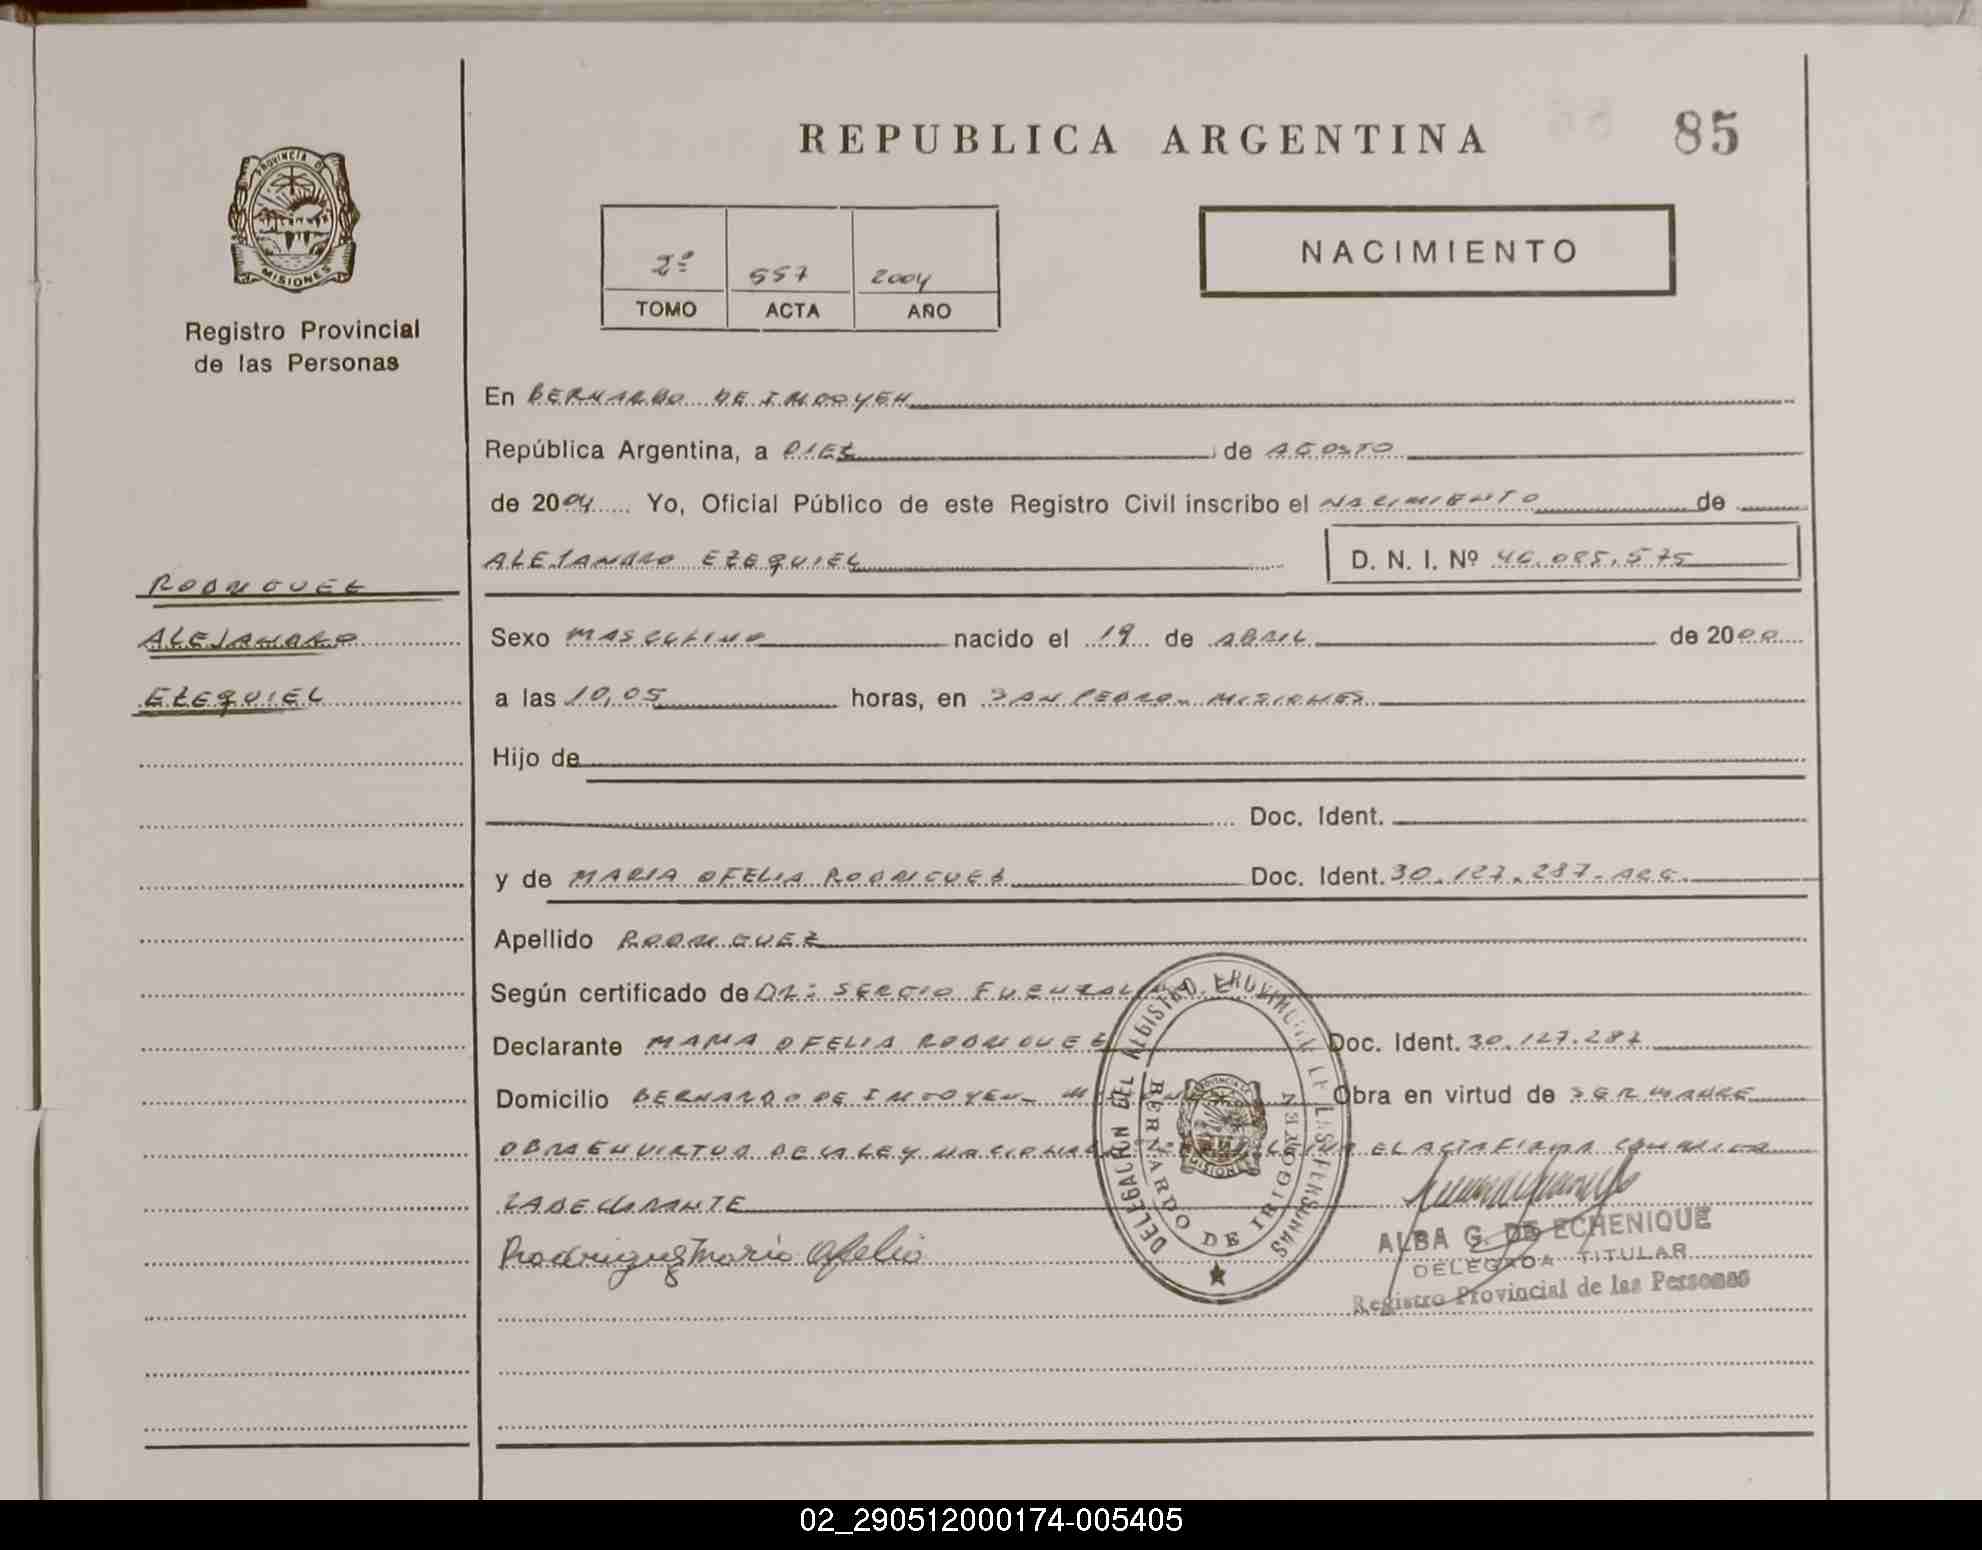 REPUBLICA ARGENTINA
85
PROVINCIA DE
MISIONES
Registro Provincial
de las Personas
2º 557 2004
TOMO ACTA AÑO
NACIMIENTO
En BERNARDO DE IRIGOYEN
República Argentina, a DIEZ de AGOSTO
de 2004 Yo, Oficial Público de este Registro Civil inscribo el NACIMIENTO de
ALEJANDRO EZEQUIEL D. N. I. Nº 46.085.575
RODRIGUEZ
ALEJANDRO
EZEQUIEL
Sexo MASCULINO nacido el 19 de ABRIL de 2000
a las 10,05 horas, en SAN PEDRO - MISIONES
Hijo de
Doc. Ident.
y de MARIA OFELIA RODRIGUEZ Doc. Ident. 30.127.287 - ARG.
Apellido RODRIGUEZ
Según certificado de DR: SERGIO
Declarante MARIA OFELIA RODRIGUEZ Doc. Ident. 30.127.287
Domicilio BERNARDO DE IRIGOYEN - Obra en virtud de SER MADRE
OBRA EN VIRTUD DE LA LEY NACIONAL EL ACTA FIRMA CONMIGO
LA DECLARANTE
Rodriguez Maria Ofelia
DELEGACION DEL REGISTRO PROVINCIAL DE LAS PERSONAS
BERNARDO DE IRIGOYEN
PROVINCIA DE
MISIONES
ALBA G. DE ECHENIQUE
DELEGADA TITULAR
Registro Provincial de las Personas
02_290512000174-005405